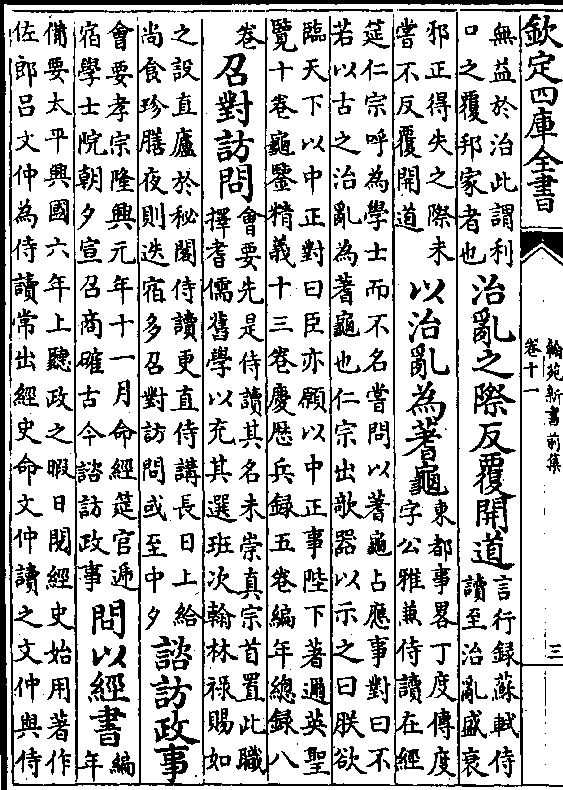 欽定四庫全書
翰苑新書前集
卷十一
三
無益於治此謂利
口之覆邦家者也
治亂之際反覆開道
言行録蘇軾侍
讀至治亂盛衰
邪正得失之際未
嘗不反覆開道
以治亂為蓍龜
東都事畧丁度傳度
字公雅兼侍讀在經
筵仁宗呼為學士而不名嘗問以蓍龜占應事對曰不
若以古之治亂為蓍龜也仁宗出欹器以示之曰朕欲
臨天下以中正對曰臣亦願以中正事陛下著邇英聖
覽十卷龜鑒精義十三卷慶厯兵録五卷編年總録八
卷
召對訪問
會要先是侍讀其名未崇真宗首置此職
擇耆儒舊學以充其選班次翰林禄賜如
之設直廬於秘閣侍讀更直侍講長日上給
尚食珍膳夜則迭宿多召對訪問或至中夕
諮訪政事
會要孝宗隆興元年十一月命經筵官遞
宿學士院朝夕宣召商確古今諮訪政事
問以經書
編
年
備要太平興國六年上聽政之暇日閱經史始用著作
佐郎吕文仲為侍讀常出經史命文仲讀之文仲與侍